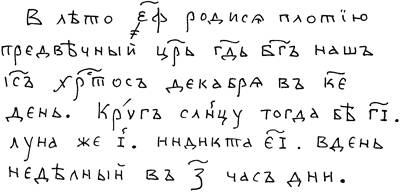 В лѣто ҂е҃ф родися плотїю
предвѣчный цр҃ь гд҃ь бг҃ъ нашъ
іс҃ъ хрⷭ҇тосъ декабря въ к҃е
день. Крꙋ́гъ слн҃цу тогда бѣ г҃і.
луна же і҃. индикта е҃і. Вдень
недѣлный въ з҃ часъ дни.